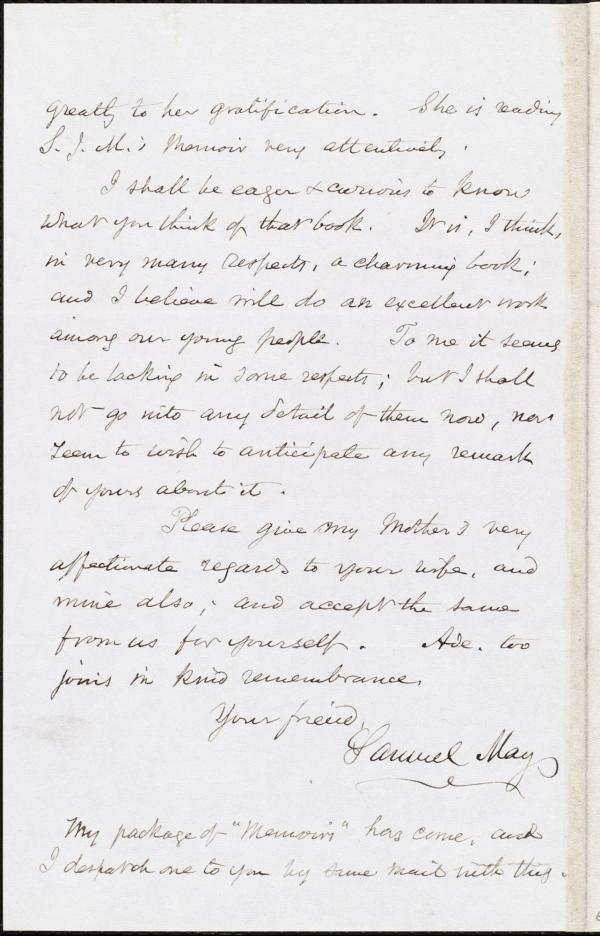 greatly to her gratification. She is reading
S. J. M.'s Memoir very attentively.
I shall be eager & curious to know
what you think of that book. It is, I think,
in very many respects, a charming book;
and I believe will do an excellent work
among our young people. To me it seems
to be lacking in some respects; but I shall
not go into any detail of them now, nor
seem to wish to anticipate any remark
of yours about it.
Please give my Mother's very
affectionate regards to your wife, and
mine also; and accept the same
from us for yourself. Ade. too
joins in kind remembrance.
Your friend,
Samuel May
My package of "Memoirs" has come, and
I despatch one to you by same mail with this.